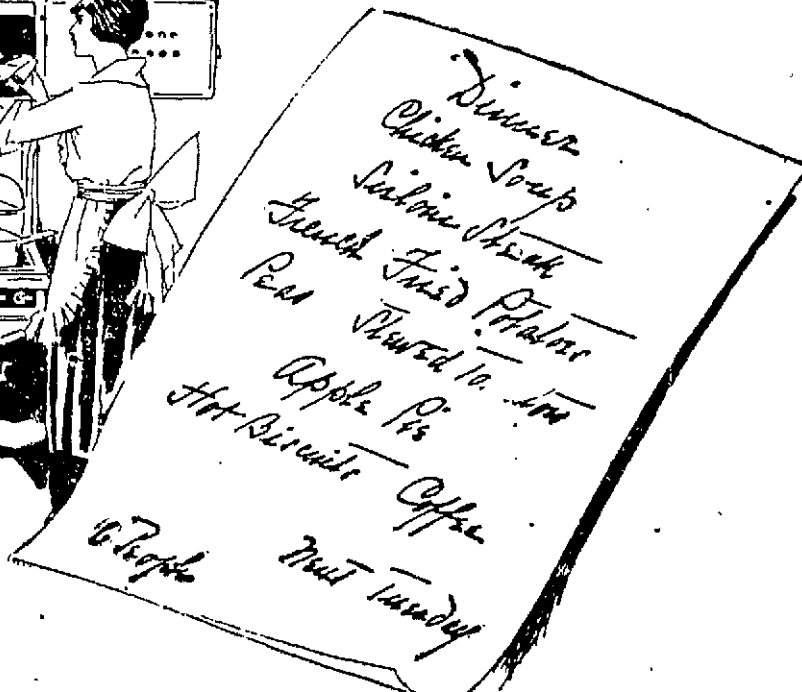 Dinner
Chicken Soup
Sirloin Steak
French Fried Potatoes
Peas Stewed
Apple Pie
Hot Biscuits Coffee
6 People Next Tuesday